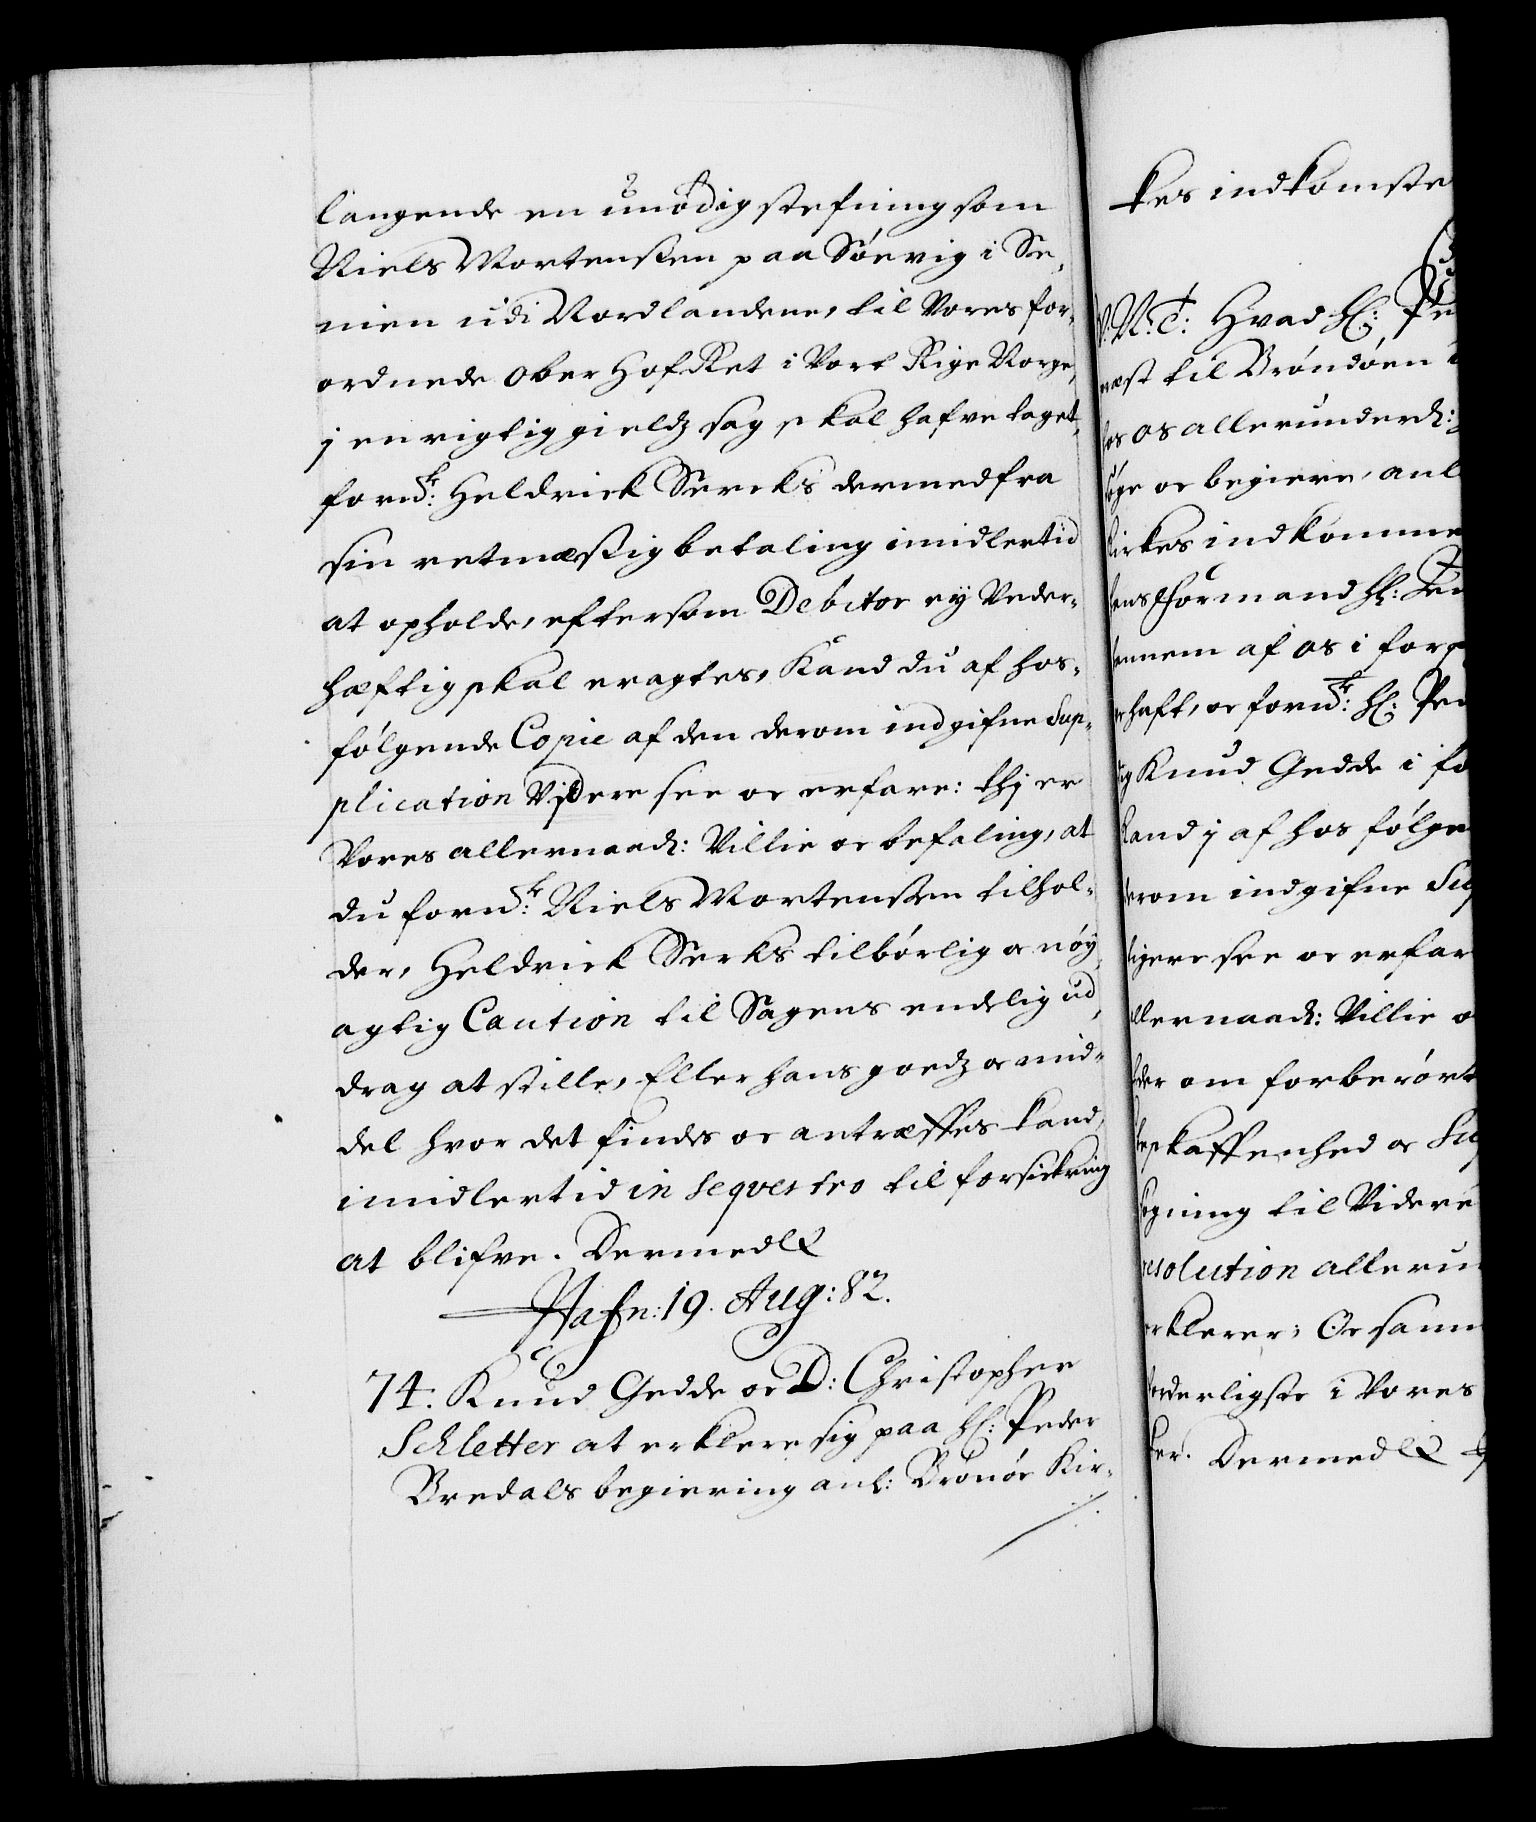 langende en unødig stefning som
Niels Mortensen paa Sørvig i Se-
nien udi Nordlandene, til Vores for-
ordnede Ober Hof Ret i Vort Rige Norge,
j en rigtig gieldz sag skal hafve taget,
fornd: Heldrick Sercks dermed fra
sin retmæssig betaling imidlertid
at opholde, eftersom Debitor ey Veder-
hæftig skal eragtes, Kand du af hos-
følgende Copie af den derom indgifne Sup-
plication Vjdere see oc erfare: thj er
Vores allernaadl: Villie oc befaling, at
du fornd: Niels Mortensen tilhol-
der, Heldrick Serks tilbørlig oc nøy-
agtig Caution til Sagens endelig ud-
drag at stille, Eller hans goedz oc mid-
del hvor det findes oc antræffes kand,
imidlertid in sequestro til forsickring
at blifve. Dermed &
Hafn: 19. Aug: 82.
74. Knud Gedde oc D: Christopher
Schletter at erklere sig paa Hl: Peder
Bredals begiering anl: Brønøe Kir-
kes indkomste
V. N. T: Hvad Hl: Pe
ræst til Brøndøen
hos os allerunderd:
søge oc begiere, anl
Kirkes indkomme
hens Formand Hl:
hannem af os i for
erhaft, oc fornd: Hl: Ped
Knud Gedde i fo
Kand j af hos følge
derom indgifne Sup
see oc erfar
allernaadl: Villie o
eder om forberørt
beskaffenhed oc Sup
søgning til Videre
resolution alleru
erklerer; Oc samm
forderligste i Vores
Dermed &